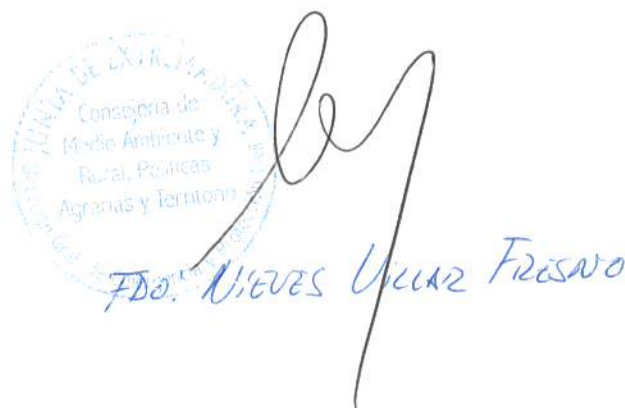 JUNTA DE EXTREMADURA
Consejería de
Medio Ambiente y
Rural, Políticas
Agrarias y Territorio
FDO: NIEVES VILLAR FRESNO